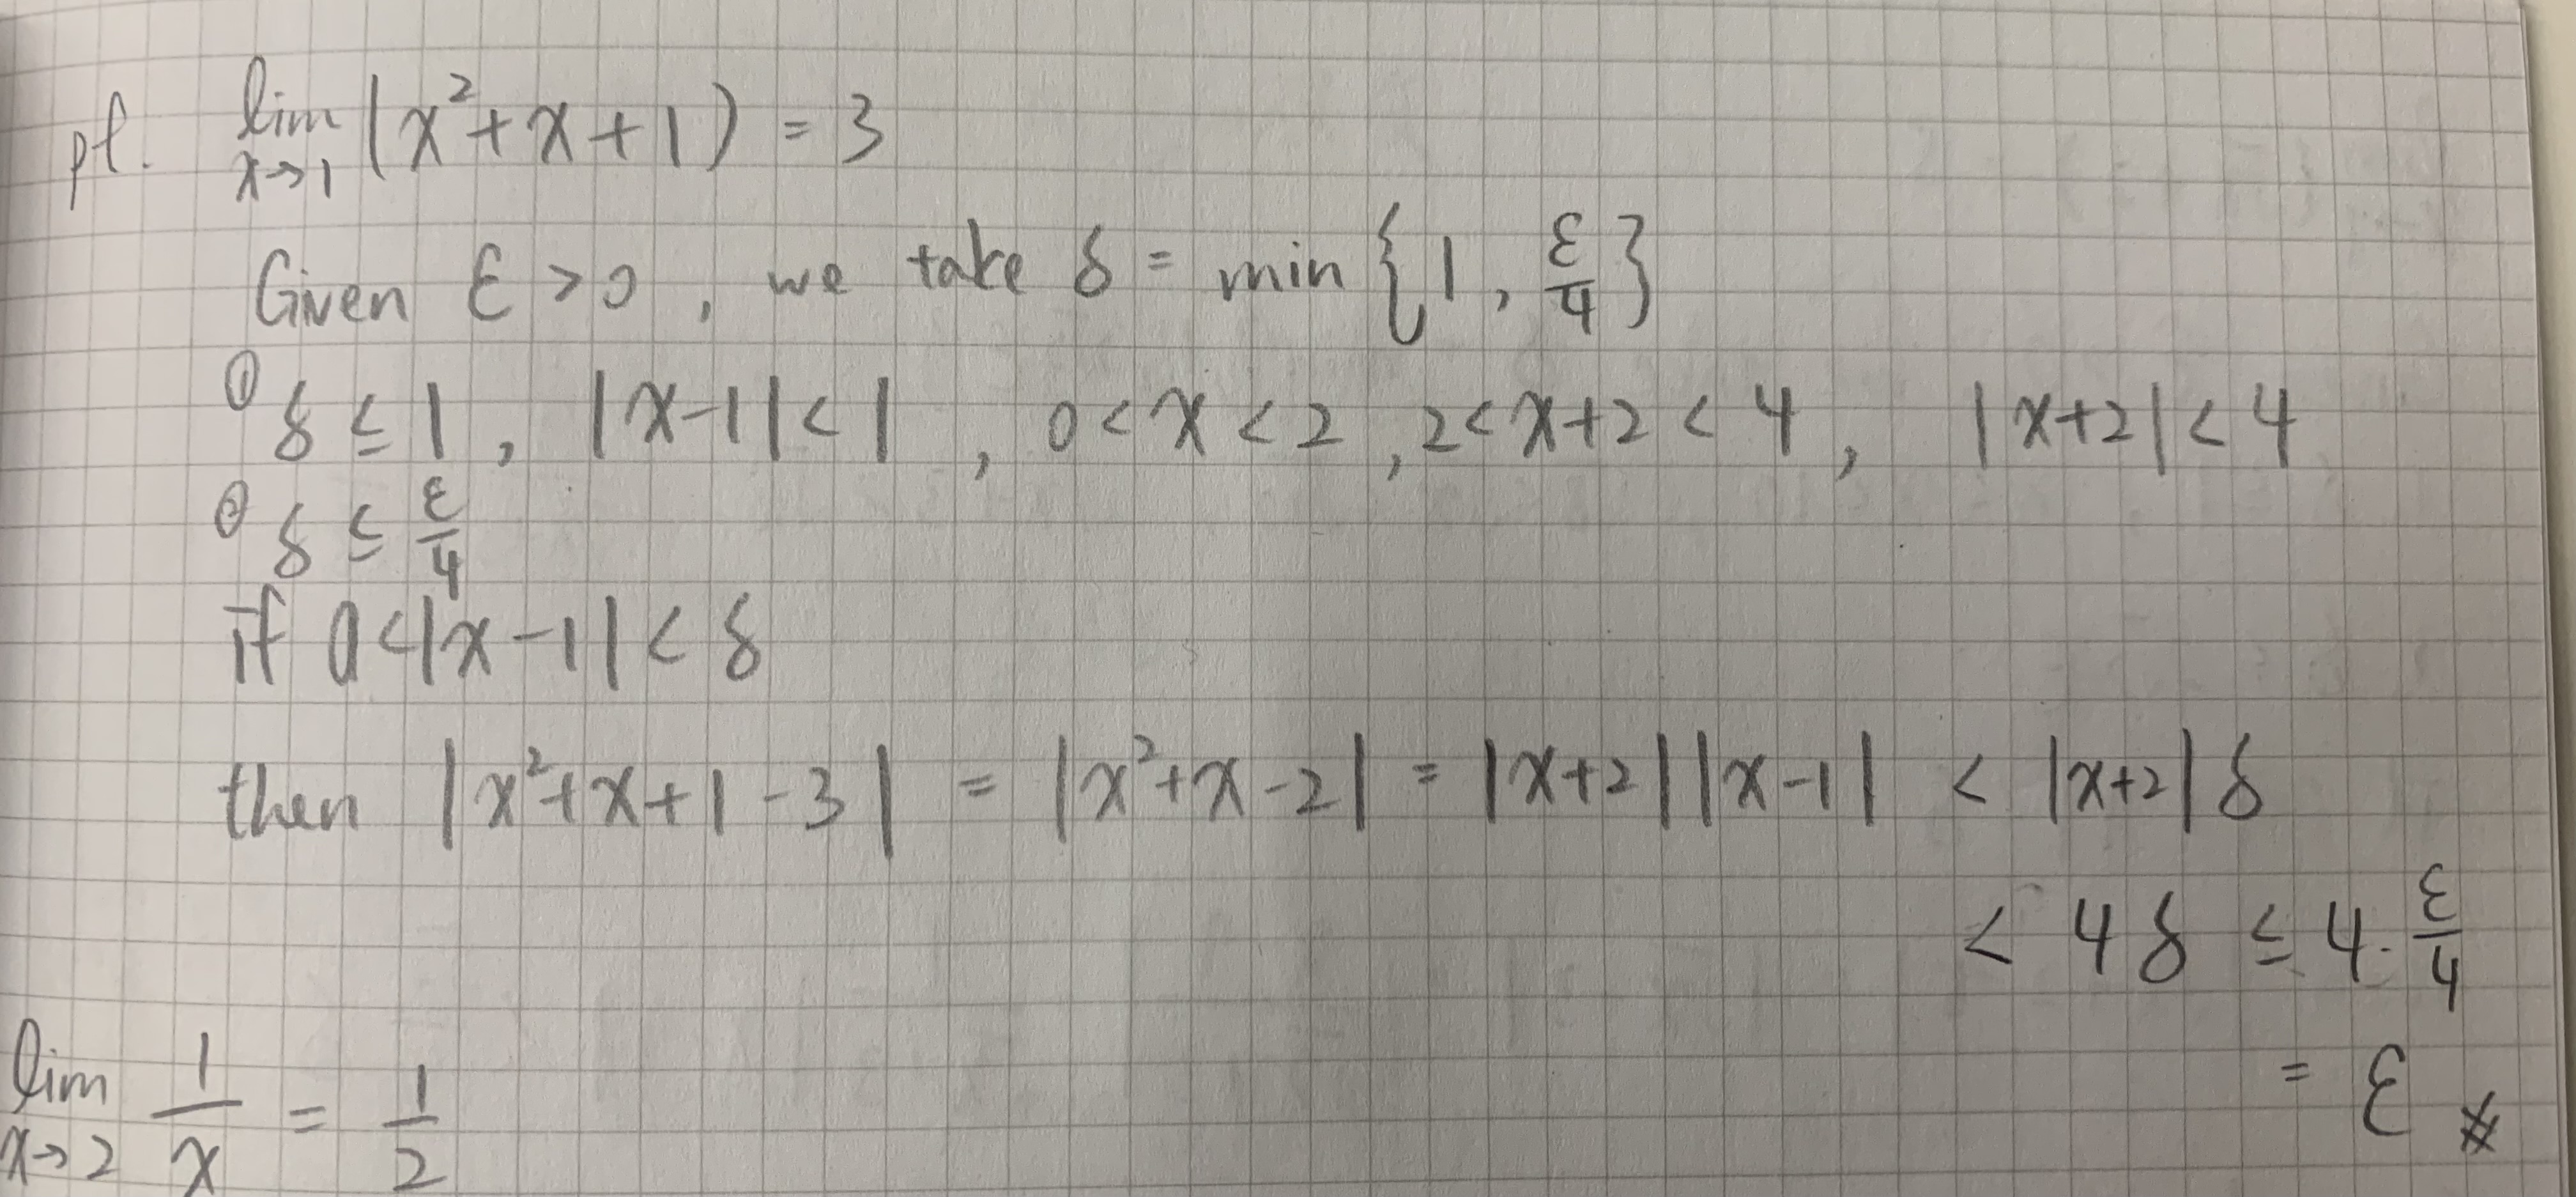 pf. lim x→1 (x²+x+1) = 3
Given ε > 0, we take δ = min {1, ε/4}
① δ ≤ 1, |x-1| < 1, 0 < x < 2, 2 < x+2 < 4, |x+2| < 4
② δ ≤ ε/4
if 0 < |x-1| < δ
then |x²+x+1-3| = |x²+x-2| = |x+2||x-1| < |x+2|δ
< 4δ ≤ 4·ε/4
= ε ※
lim x→2 1/x = 1/2